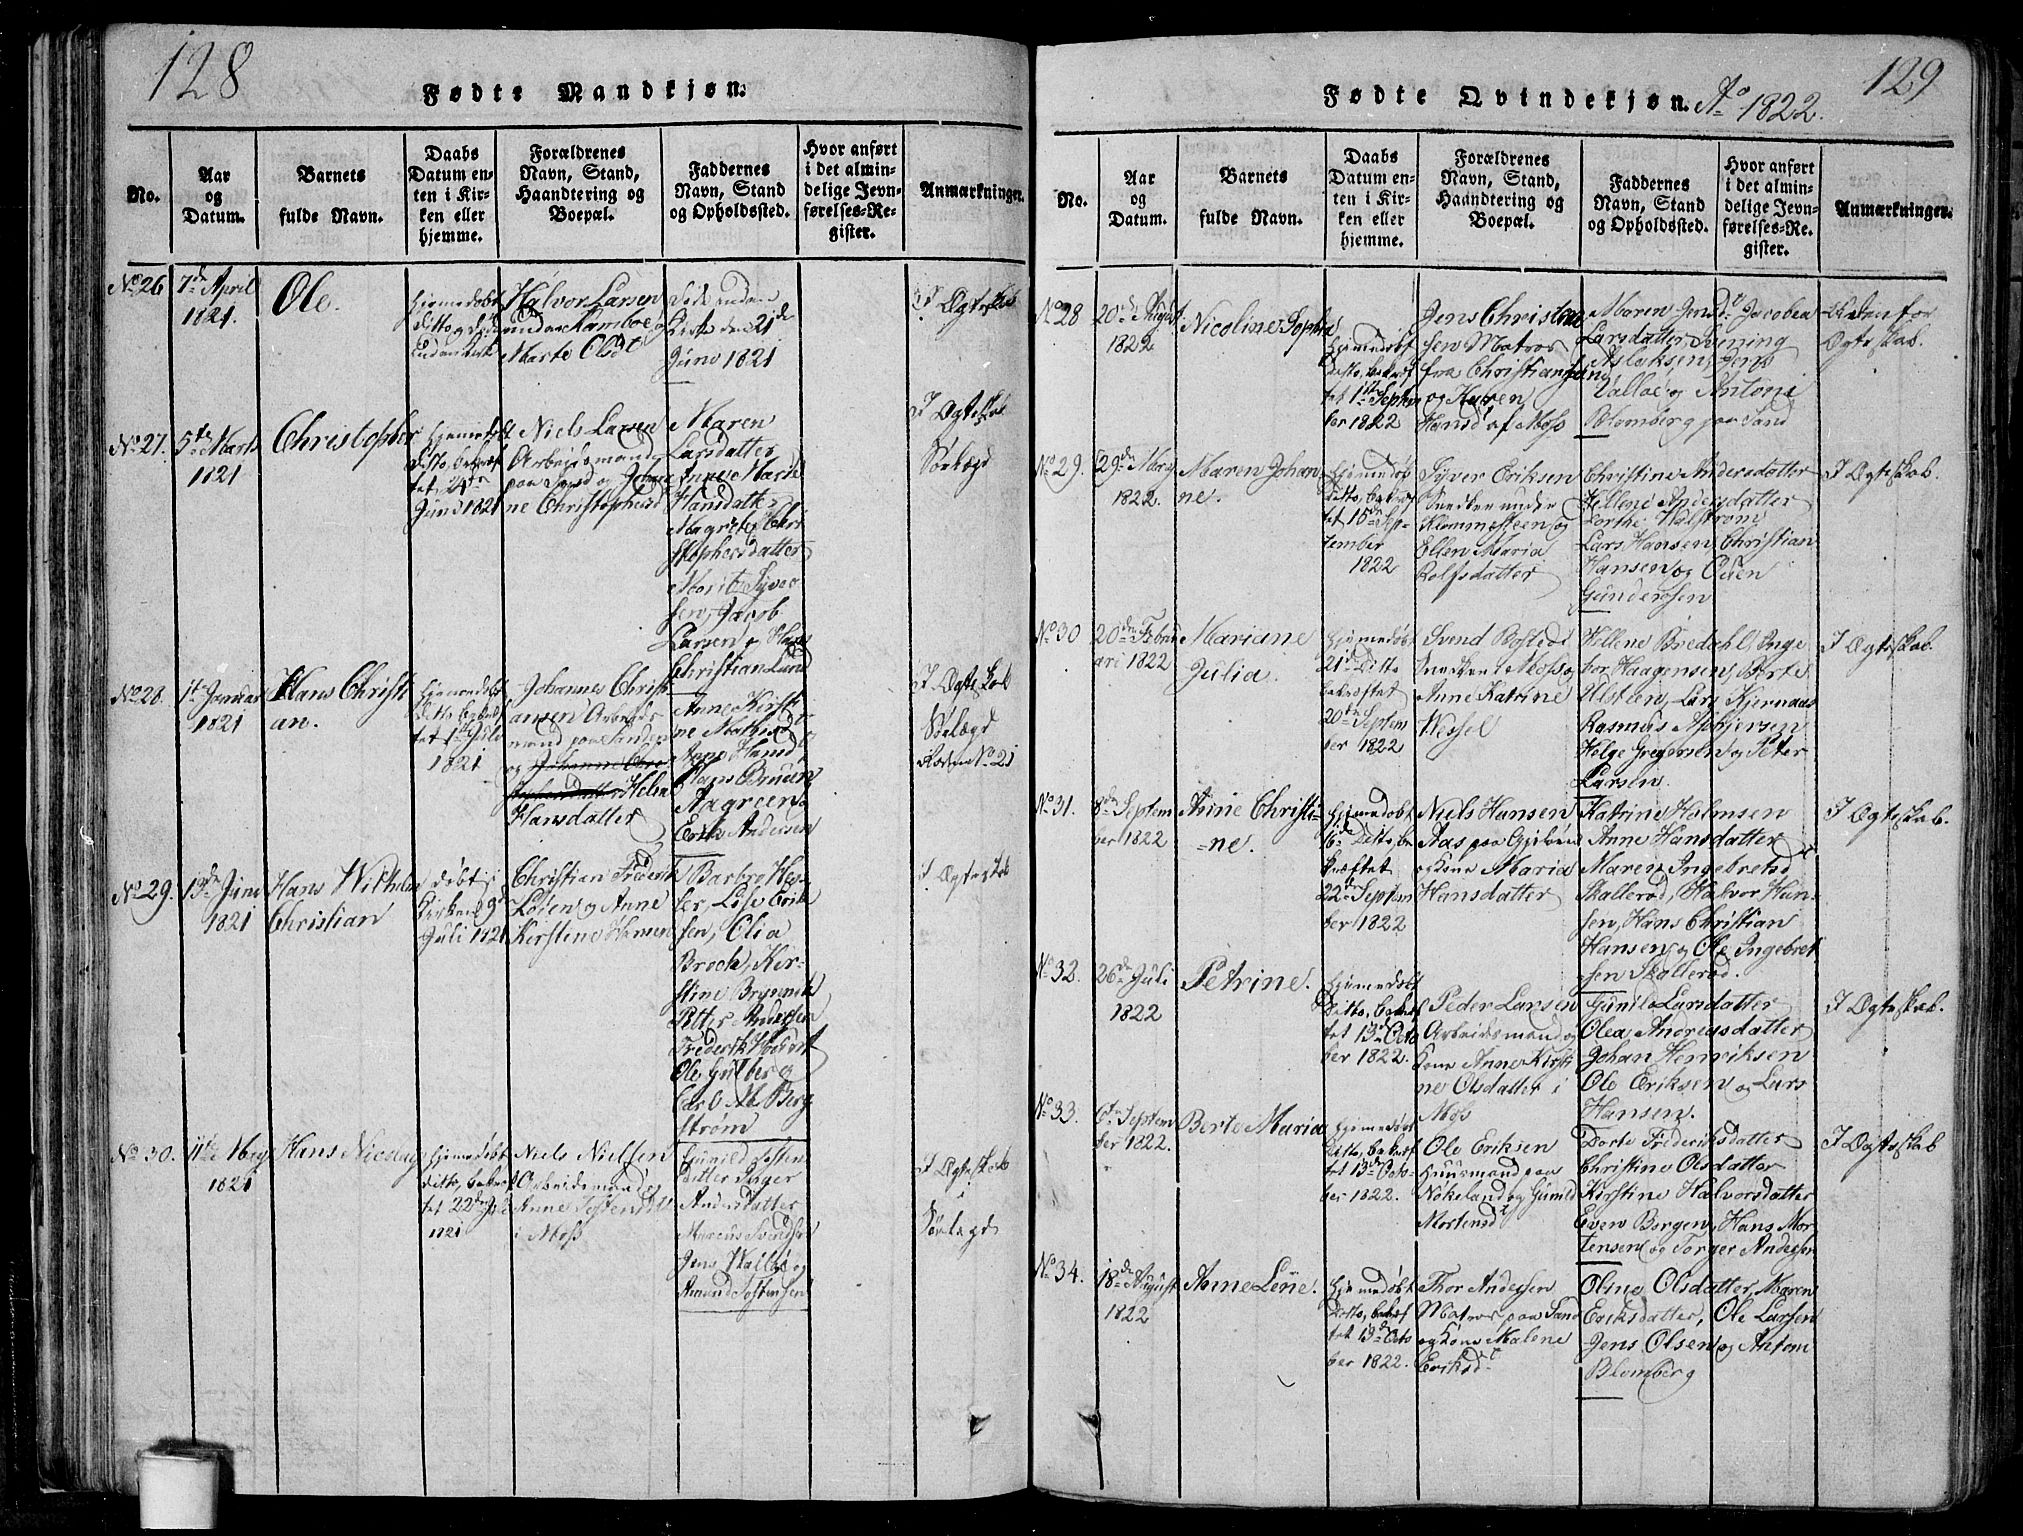 128
Fødte Mandkjøn.
No.
Aar
og
Datum.
Barnets
fulde Navn.
Daabs
Datum en-
ten i Kir-
ken eller
hjemme.
Forældrenes
Navn, Stand,
Haandtering og
Boepæl.
Faddernes
Navn, Stand
og Opholdssted.
Hvor anført
i det almin-
delige Jevn-
førelses-Re-
gister.
Anmærkninger.
No 26
7de April
1821.
Ole.
Hjemmedøbt
Halvor Larsen
Marte Olsdt
Døde uden
Kirke den 21de
Juno 1821
I Ægteskab
No 27.
5te Marts
1821
Christopher
Hjemmedøbt
Ditto, bekræf
tet 24de
Juni 1821
Niels Larsen
Arbeidsmand
paa Sand og Johan
ne Christophersd
Maren
Larsdatter
Anne Marie
Hansdatter
Magrete Chri
stophersdatter
Marit Syver
sen, Jacob
Larsen og Hans
Christian Lund
I Ægteskab
No 28.
1te Januar
1821
Hans Christi
an.
Hjemmedøbt
Ditto bekræf
tet 1te Juli
1821
Johannes Christi
ansen Arbeids
mand paa Sanden
og Johanne Chri
stophersdatter Helen
Hansdatter
Anne Kirsti
ne Mathisd
Anne Hansd
Hans Bruun
Aagreen og
Erik Andersen
I Ægteskab
No 21
No 29.
13de Juni
1821
Hans Wilhelm
Christian
døbt i
Kirken 9d
Juli 1821
Christian Frederik
og Anne
Kirstine
Barbro Hes-
Lise Erik
sen, Olia
Brock, Kir-
stine
Petter Andersen
Frederik
Ole Gulberg
Carl M. Berg
strøm
I Ægteskab
No 30.
11te Marz
1821
Hans Nicolay
Hjemmedøbt
Ditto, bekræf
tet 22de Juli
1821
Niels Nielsen
Arbeidsmand
Anne Tostensdt
i Moss
Gunild Tosten
datter
Andersdatter
Marcus Svendsen
Jens Walløe og
Amund Tostensen
I Ægteskab
129
Fødte Qvindekjøn. Ao 1822.
No.
Aar
og
Datum.
Barnets
fulde Navn.
Daabs
Datum en-
ten i Kir-
ken eller
hjemme.
Forældrenes
Navn, Stand,
Haandtering og
Boepæl.
Faddernes
Navn, Stand
og Opholdssted.
Hvor anført
i det almin-
delige Jevn-
førelses-Re-
gister.
Anmærkninger.
No 28
20de August
1822
Nicoline Sophia
Hjemmedøbt
Ditto, bekræf
tet 1te Septem
ber 1822
Jens Christian
sen Matros
fra Christiansand
og Karen
Hansd af Moss
Maren Jensdt Jacobea
Larsdatter,
Aslaksen, Jens
Valløe og Antoni
Blomberg paa Sand
Udenfor
Ægteskab.
No 29.
29de Marz
1822.
Maren Johan
ne.
Hjemmedøbt
Ditto, bekræf
tet 15de Sep-
tember
1822
Syver Eriksen
Snedker under
Klommesteen og
Ellen Maria
Rolfsdatter
Christine Andersdatter
Hellene Andersdatter
Dorthe Walstrøm
Lars Hansen, Christian
Hansen og Even
Gundersen
I Ægteskab.
No 30
20de Febru
ari 1822
Mariane
Julia.
Hjemmedøbt
21d Ditto
bekræftet
20de Septem
ber 1822
Svend Bosted
Snedker i Moss og
Anne Katrine
Wessel
Hellene Bredahl, Inge
bor Haagensen, Berte
Ulsteen, Lars Kjernaas
Rasmus Asbjørsen
Helge Gregersen og Peter
Larsen.
I Ægteskab.
No 31.
8de Septem
ber 1822
Anne Christi-
ne.
Hjemmedøbt
16de Ditto be
kræftet
22d Septem
ber 1822
Niels Hansen
Aas paa Gjeløen
og Kone Maria
Hansdatter
Katrine Holmsen
Anne Hansdatter
Maren Ingebretsdt
Skallerød, Halvor Han-
sen, Hans Christian
Hansen og Ole Ingebret
sen Skallerød.
I Ægteskab.
No 32.
26de Juli
1822
Petrine.
Hjemmedøbt
Ditto, bekræf
tet 13de Octo
ber 1822.
Peder Larsen
Arbeidsmand og
Kone Anne Kirsti
ne Olsdatter i
Moss
Gunild Larsdatter
Olea Andreasdatter
Johan Henriksen
Ole Eriksen og Lars
Hansen.
I Ægteskab.
No 33.
6te Septem
ber 1822.
Berte Maria
Hjemmedøbt
Ditto, bekræf
tet 13de Octo-
ber 1822.
Ole Eriksen
Huusmand paa
Nokeland og Gunild
Mortensdt
Dorte Frederiksdatter
Christine Olsdatter
Kirstine Halvorsdatter
Even Bergen, Hans Mor
tensen og Torger Andersen
I Ægteskab
No 34.
18de August
1822
Anne Lene.
Hjemmedøbt
Ditto, bekræf
tet 13de Octo
ber 1822.
Thor Andersen
Matros paa Sand
og Kone Malene
Eriksdt
Oline Olsdatter, Maren
Eriksdatter, Ole Larsen
Jens Olsen og Antoni
Blomberg